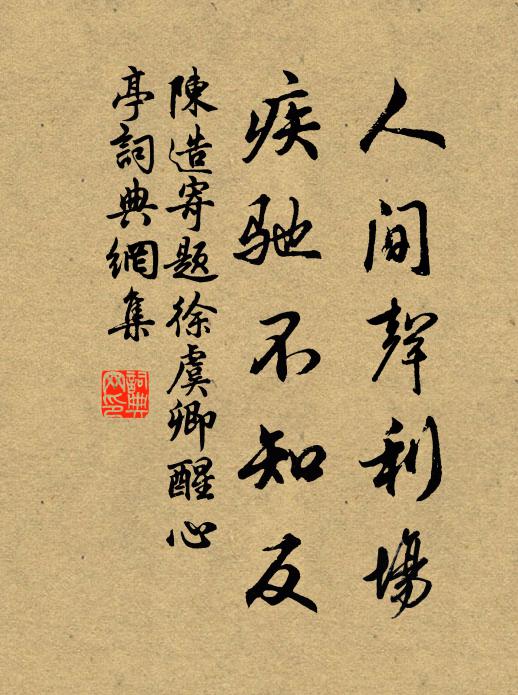 人間聲利場
疾馳不知反
陳造寄題徐虞卿醒心
亭詞典網集
詞典網印